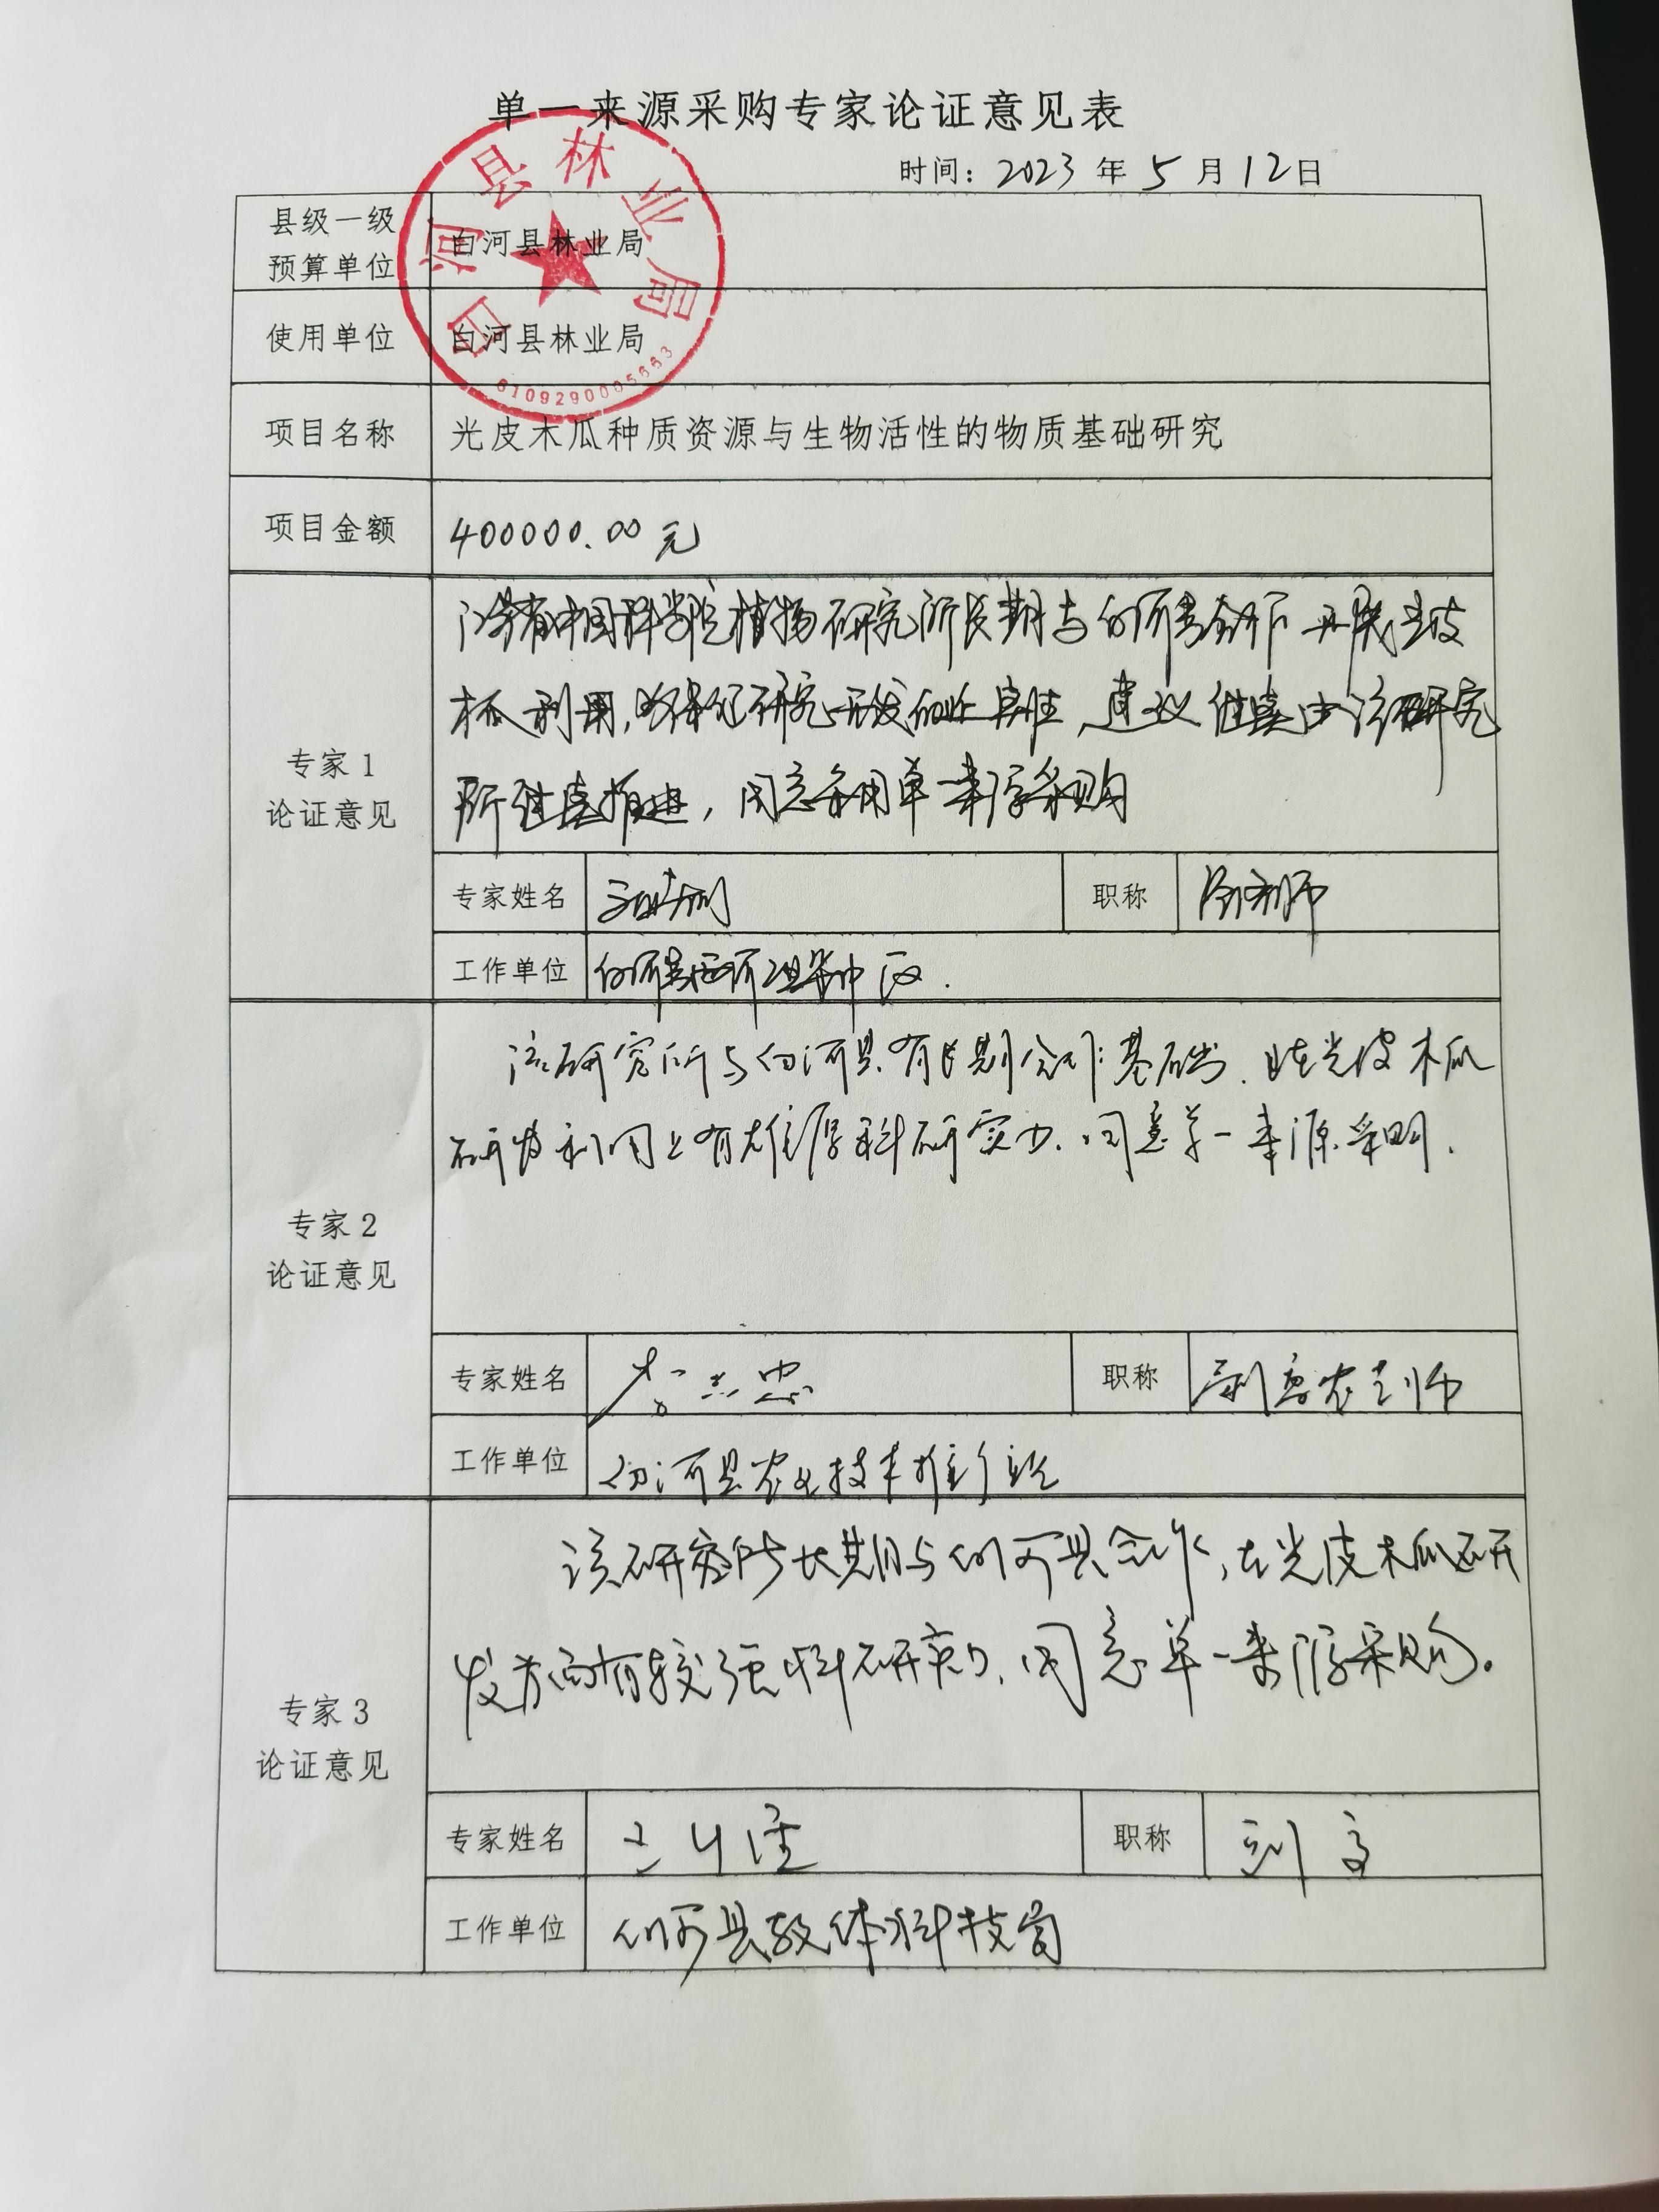 单一来源采购专家论证意见表
时间：2023年5月12日
县级一级
预算单位
白河县林业局
使用单位
白河县林业局
白河县林业局
6109290005663
项目名称
光皮木瓜种质资源与生物活性的物质基础研究
项目金额
400000.00元
专家1
论证意见
中国科学院植物研究所长期与白河县合作开展光皮
木瓜利用，为保证研究开发的连续性，建议继续由该研究
所继续推进，同意采用单一来源采购
专家姓名
职称
工作单位
白河县
专家2
论证意见
该研究所与白河县有长期合作基础，且在光皮木瓜
研发利用上有雄厚科研实力，同意单一来源采购．
专家姓名
李志忠
职称
副高农艺师
工作单位
白河县农业技术推广站
专家3
论证意见
该研究所长期与白河县合作，在光皮木瓜研
发方面有较强科研实力，同意单一来源采购。
专家姓名
职称
副高
工作单位
白河县教体科技局